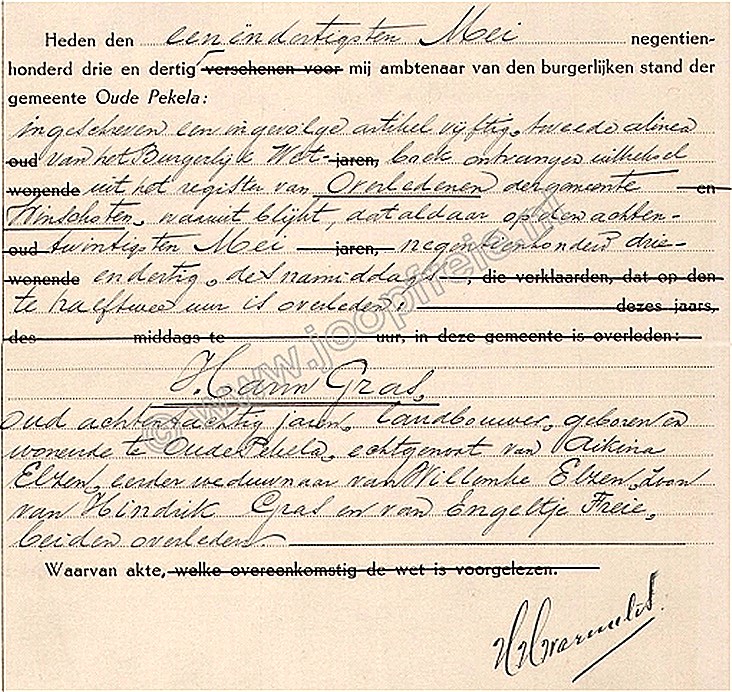 Heden den een en dertigsten Mei negentien-
honderd drie en dertig verschenen voor mij ambtenaar van den burgerlijken stand der
gemeente Oude Pekela:
ingeschreven een ingevolge artikel vijftig, tweede alinea
oud van het Burgerlijk Wet- jaren, boek ontvangen uittreksel
wonende uit het register van Overledenen der gemeente en
Winschoten, waaruit blijkt, dat aldaar op den achten-
oud twintigsten Mei jaren, negentienhonderd drie-
wonende en dertig, des namiddags, die verklaarden, dat op den
te half twee uur is overleden: dezes jaars,
des middags te uur, in deze gemeente is overleden:
Harm Gras,
oud achtentachtig jaren, landbouwer, geboren en
wonende te Oude Pekela, echtgenoot van Aikina
Elzen, eerder weduwnaar van Willemke Elzen, zoon
van Hindrik Gras en van Engeltje Freie,
beiden overleden.
Waarvan akte, welke overeenkomstig de wet is voorgelezen.
© www.joopfreie.nl